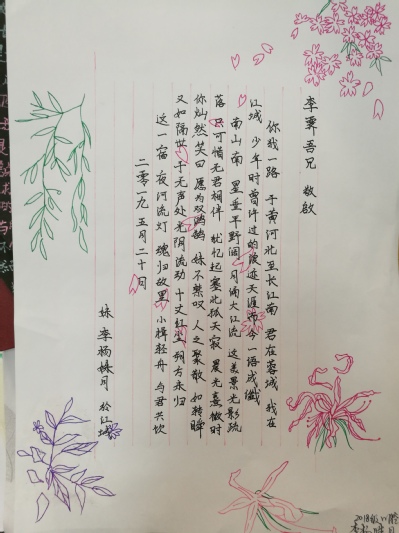 李霁吾兄 敬啟
你我一路 于黄河北至长江南 君在蓉城 我在
江城 少年时曾许过的浪迹天涯 而今一语成谶
南山南 星垂平野阔 月涌大江流 这美景光影疏
落 只可惜无君相伴 犹忆起塞北孤天寂 晨光熹微时
你灿然笑曰 愿为双鸿鹄 妹不禁叹 人之聚散 如转瞬
又如隔世 于无声处光阴流动 十丈红尘 朔方永归
这一宿 夜河流灯 魂归故里 小楫轻舟 与君共饮
二零一九 五月二十日
妹 李杨姝玥 於江城
2018级